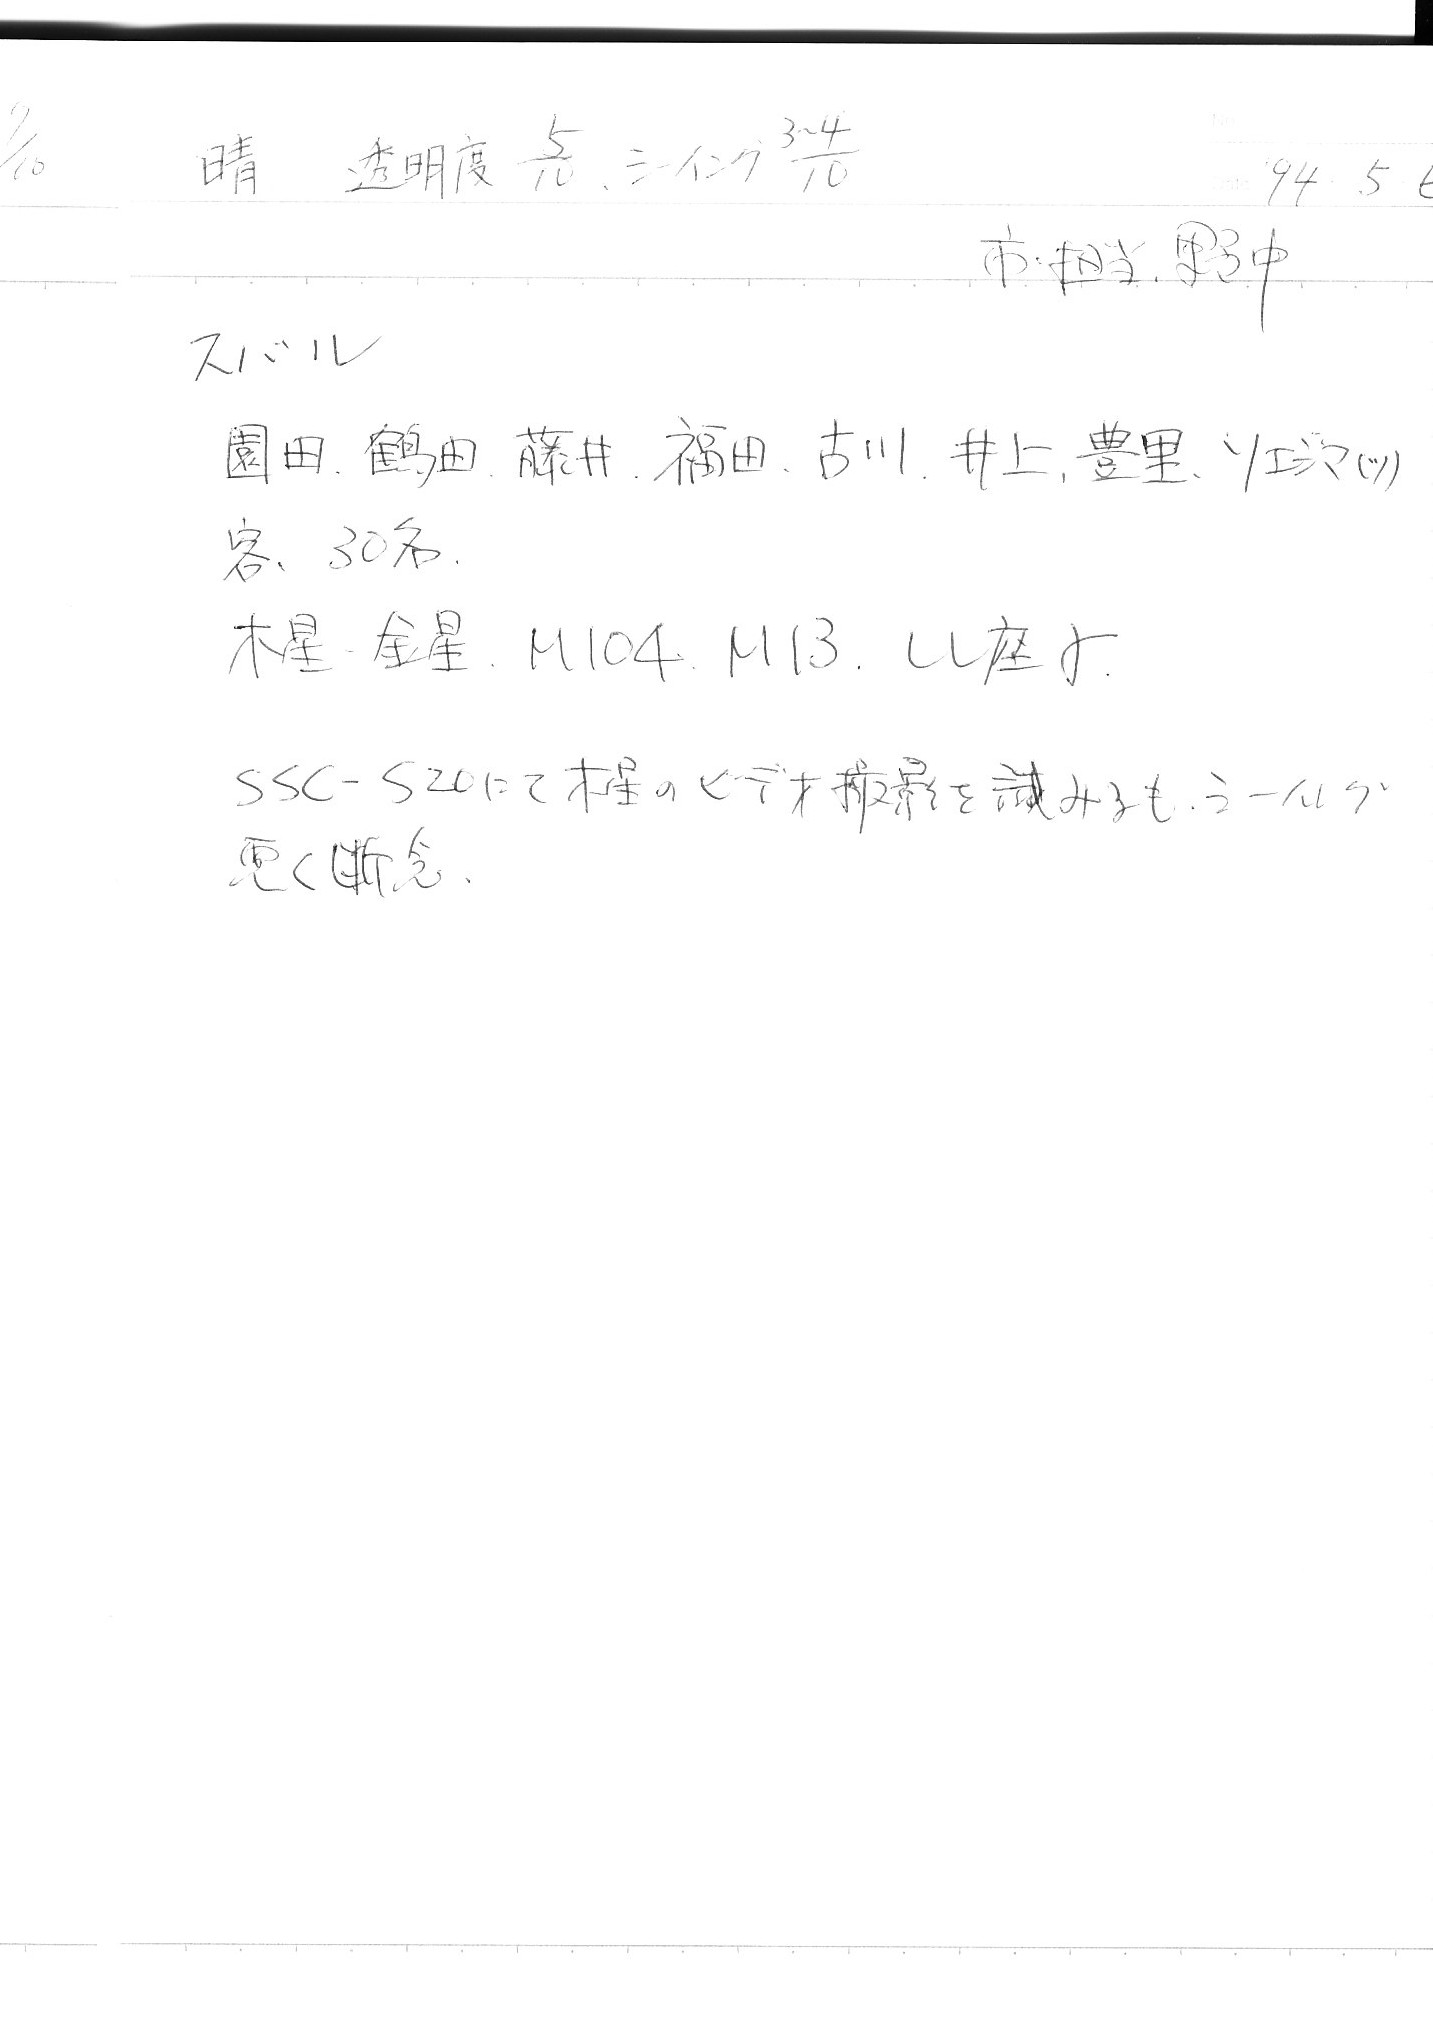 晴 透明度 5/10、シーイング 3~4/10
'94. 5. 6
市・担当. 野中
スバル
園田. 鶴田. 藤井. 福田. 古川. 井上, 豊里、ソエジマ(ツ)
客、30名.
木星・金星. M104. M13. しし座γ.
SSC-S20にて木星のビデオ撮影を試みるも.シーイング
悪く断念.